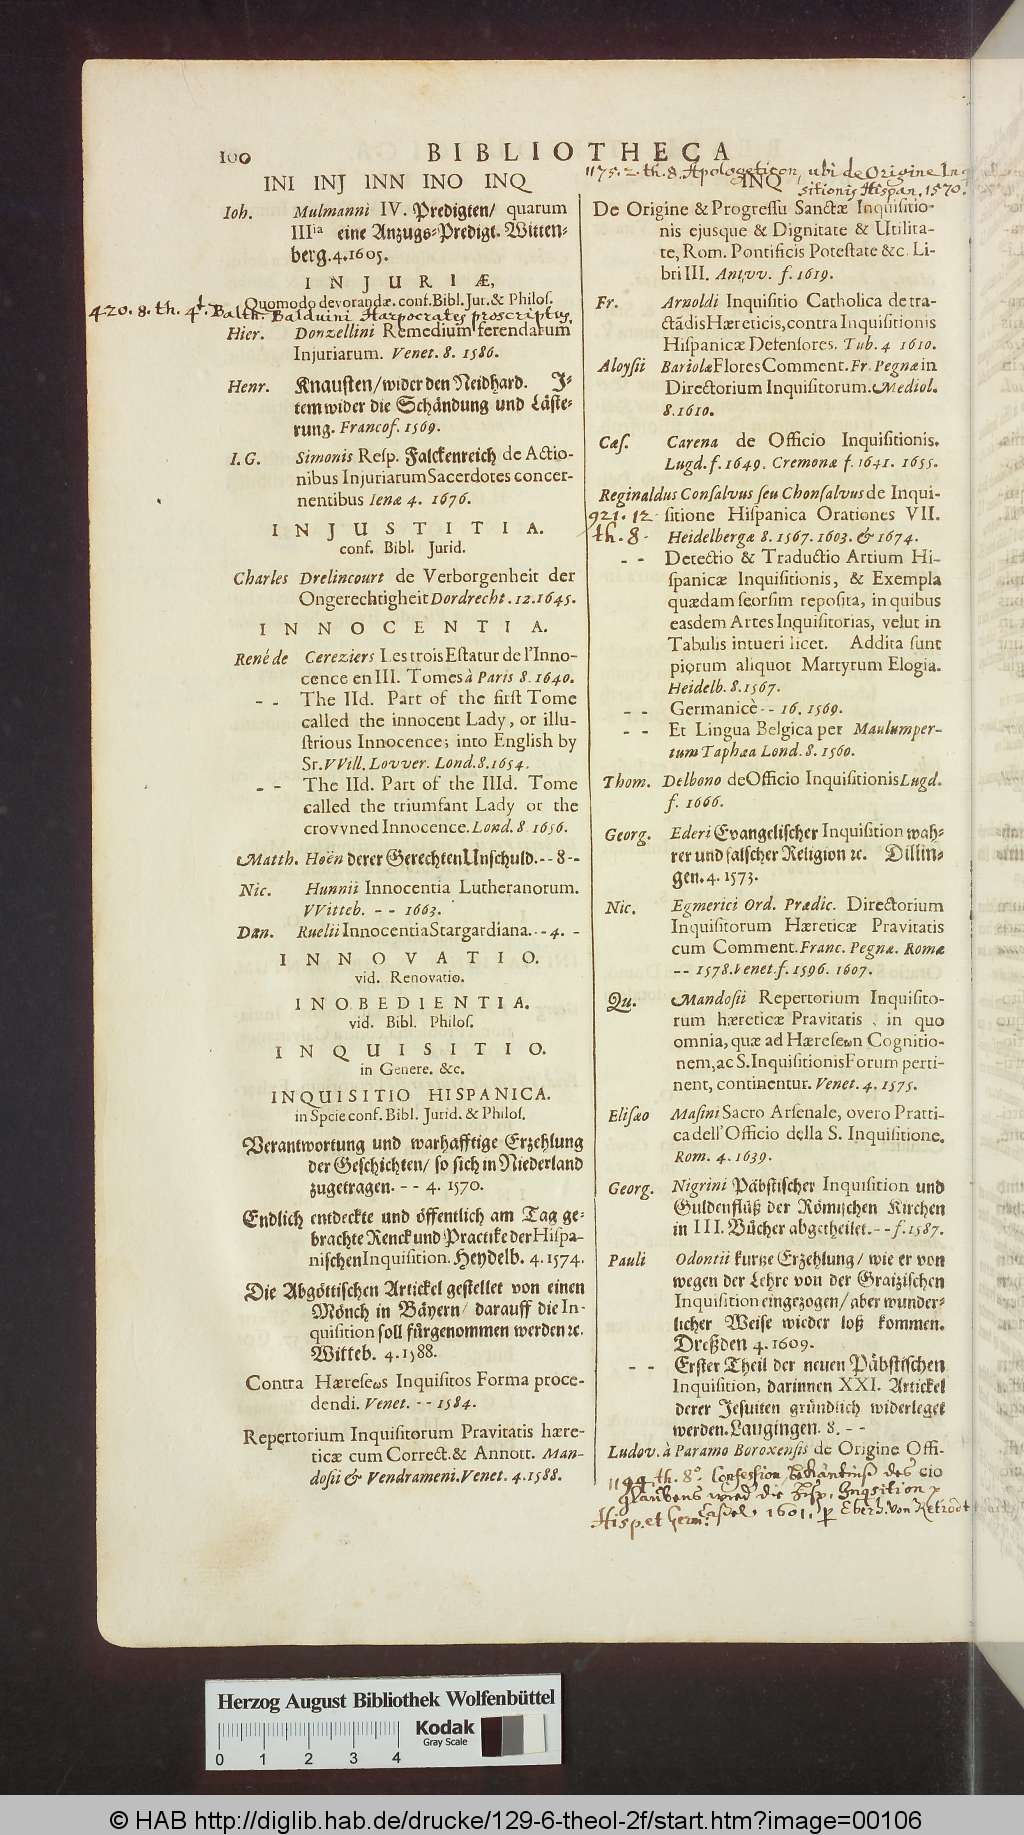 100 BIBLIOTHECA
INI INJ INN INO INQ
Ioh. Mulmanni IV. Predigten/ quarum
IIIia eine Anzugs-Predigt. Witten-
berg. 4. 1605.
INJURIÆ,
Quomodo devorandæ. conf. Bibl. Jur. & Philos.
420. 8. th. 4t. Balth. Balduini Harpocrates proscriptus.
Hier. Donzellini Remedium ferendarum
Injuriarum. Venet. 8. 1586.
Henr. Knausten/ wider den Neidhard. J-
tem wider die Schändung und Läste-
rung. Francof. 1569.
I. G. Simonis Resp. Falckenreich de Actio-
nibus Injuriarum Sacerdotes concer-
nentibus Ienæ 4. 1676.
INJUSTITIA.
conf. Bibl. Jurid.
Charles Drelincourt de Verborgenheit der
Ongerechtigheit Dordrecht. 12. 1645.
INNOCENTIA.
René de Cereziers Les trois Estatur de l'Inno-
cence en III. Tomes à Paris 8. 1640.
- - The IId. Part of the first Tome
called the innocent Lady, or illu-
strious Innocence; into English by
Sr. VVill. Lovver. Lond. 8. 1654.
- - The IId. Part of the IIId. Tome
called the triumfant Lady or the
crovvned Innocence. Lond. 8 1656.
Matth. Hoën derer Gerechten Unschuld. - - 8 - -
Nic. Hunnii Innocentia Lutheranorum.
VVitteb. - - 1663.
Dan. Ruelii Innocentia Stargardiana. - - 4. -
INNOVATIO.
vid. Renovatio.
INOBEDIENTIA.
vid. Bibl. Philos.
INQUISITIO.
in Genere. &c.
INQUISITIO HISPANICA.
in Spcie conf. Bibl. Jurid. & Philos.
Verantwortung und warhafftige Erzehlung
der Geschichten/ so sich in Niederland
zugetragen. - - 4. 1570.
Endlich entdeckte und öffentlich am Tag ge-
brachte Renck und Practike der Hispa-
nischen Inquisition. Heydelb. 4. 1574.
Die Abgöttischen Artickel gestellet von einen
Mönch in Bäyern/ darauff die In-
quisition soll fürgenommen werden ꝛc.
Witteb. 4. 1588.
Contra Hæreseωs Inquisitos Forma proce-
dendi. Venet. - - 1584.
Repertorium Inquisitorum Pravitatis hære-
ticæ cum Correct. & Annott. Man-
dosii & Vendrameni. Venet. 4. 1588.
1175. 2. th. 8. Apologeticon, ubi de Origine Inq
sitionis Hispan. 1570.
INQ
De Origine & Progressu Sanctæ Inquisitio-
nis ejusque & Dignitate & Utilita-
te, Rom. Pontificis Potestate &c. Li-
bri III. Antvv. f. 1619.
Fr. Arnoldi Inquisitio Catholica de tra-
ctãdis Hæreticis, contra Inquisitionis
Hispanicæ Defensores. Tub. 4 1610.
Aloysii Bariolæ Flores Comment. Fr. Pegnæ in
Directorium Inquisitorum. Mediol.
8. 1610.
Cæs. Carena de Officio Inquisitionis.
Lugd. f. 1649. Cremonæ f. 1641. 1655.
Reginaldus Consalvus seu Chonsalvus de Inqui-
921. 12 sitione Hispanica Orationes VII.
th. 8. Heidelbergæ 8. 1567. 1603. & 1674.
- - Detectio & Traductio Artium Hi-
spanicæ Inquisitionis, & Exempla
quædam seorsim reposita, in quibus
easdem Artes Inquisitorias, velut in
Tabulis intueri licet. Addita sunt
piorum aliquot Martyrum Elogia.
Heidelb. 8. 1567.
- - Germanicè - - 16. 1569.
- - Et Lingua Belgica per Maulumper-
tum Taphæa Lond. 8. 1560.
Thom. Delbono de Officio Inquisitionis Lugd.
f. 1666.
Georg. Ederi Evangelischer Inquisition wah-
rer und falscher Religion ꝛc. Dillin-
gen. 4. 1573.
Nic. Egmerici Ord. Prædic. Directorium
Inquisitorum Hæreticæ Pravitatis
cum Comment. Franc. Pegnæ. Romæ
- - 1578. Venet. f. 1596. 1607.
Qu. Mandosii Repertorium Inquisito-
rum hæreticæ Pravitatis, in quo
omnia, quæ ad Hæreseωn Cognitio-
nem, ac S. Inquisitionis Forum perti-
nent, continentur. Venet. 4. 1575.
Elisæo Masini Sacro Arsenale, overo Pratti-
ca dell' Officio della S. Inquisitione.
Rom. 4. 1639.
Georg. Nigrini Päbstischer Inquisition und
Guldenflüß der Römischen Kirchen
in III. Bücher abgetheilet. - - f. 1587.
Pauli Odontii kurtze Erzehlung/ wie er von
wegen der Lehre von der Graizischen
Inquisition eingezogen/ aber wunder-
licher Weise wieder loß kommen.
Dreßden 4. 1609.
- - Erster Theil der neuen Päbstischen
Inquisition, darinnen XXI. Artickel
derer Jesuiten gründlich widerleget
werden. Laugingen. 8. - -
Ludov. à Paramo Boroxensis de Origine Offi-
1194. th. 8°. Confession Bekäntniß des
glaubens wied die Hisp. Inqsition
Hisp. et Germ. Cassel 1601. Eberh. von Retrodt
cio
Herzog August Bibliothek Wolfenbüttel
0 1 2 3 4
Kodak
Gray Scale
© HAB http://diglib.hab.de/drucke/129-6-theol-2f/start.htm?image=00106